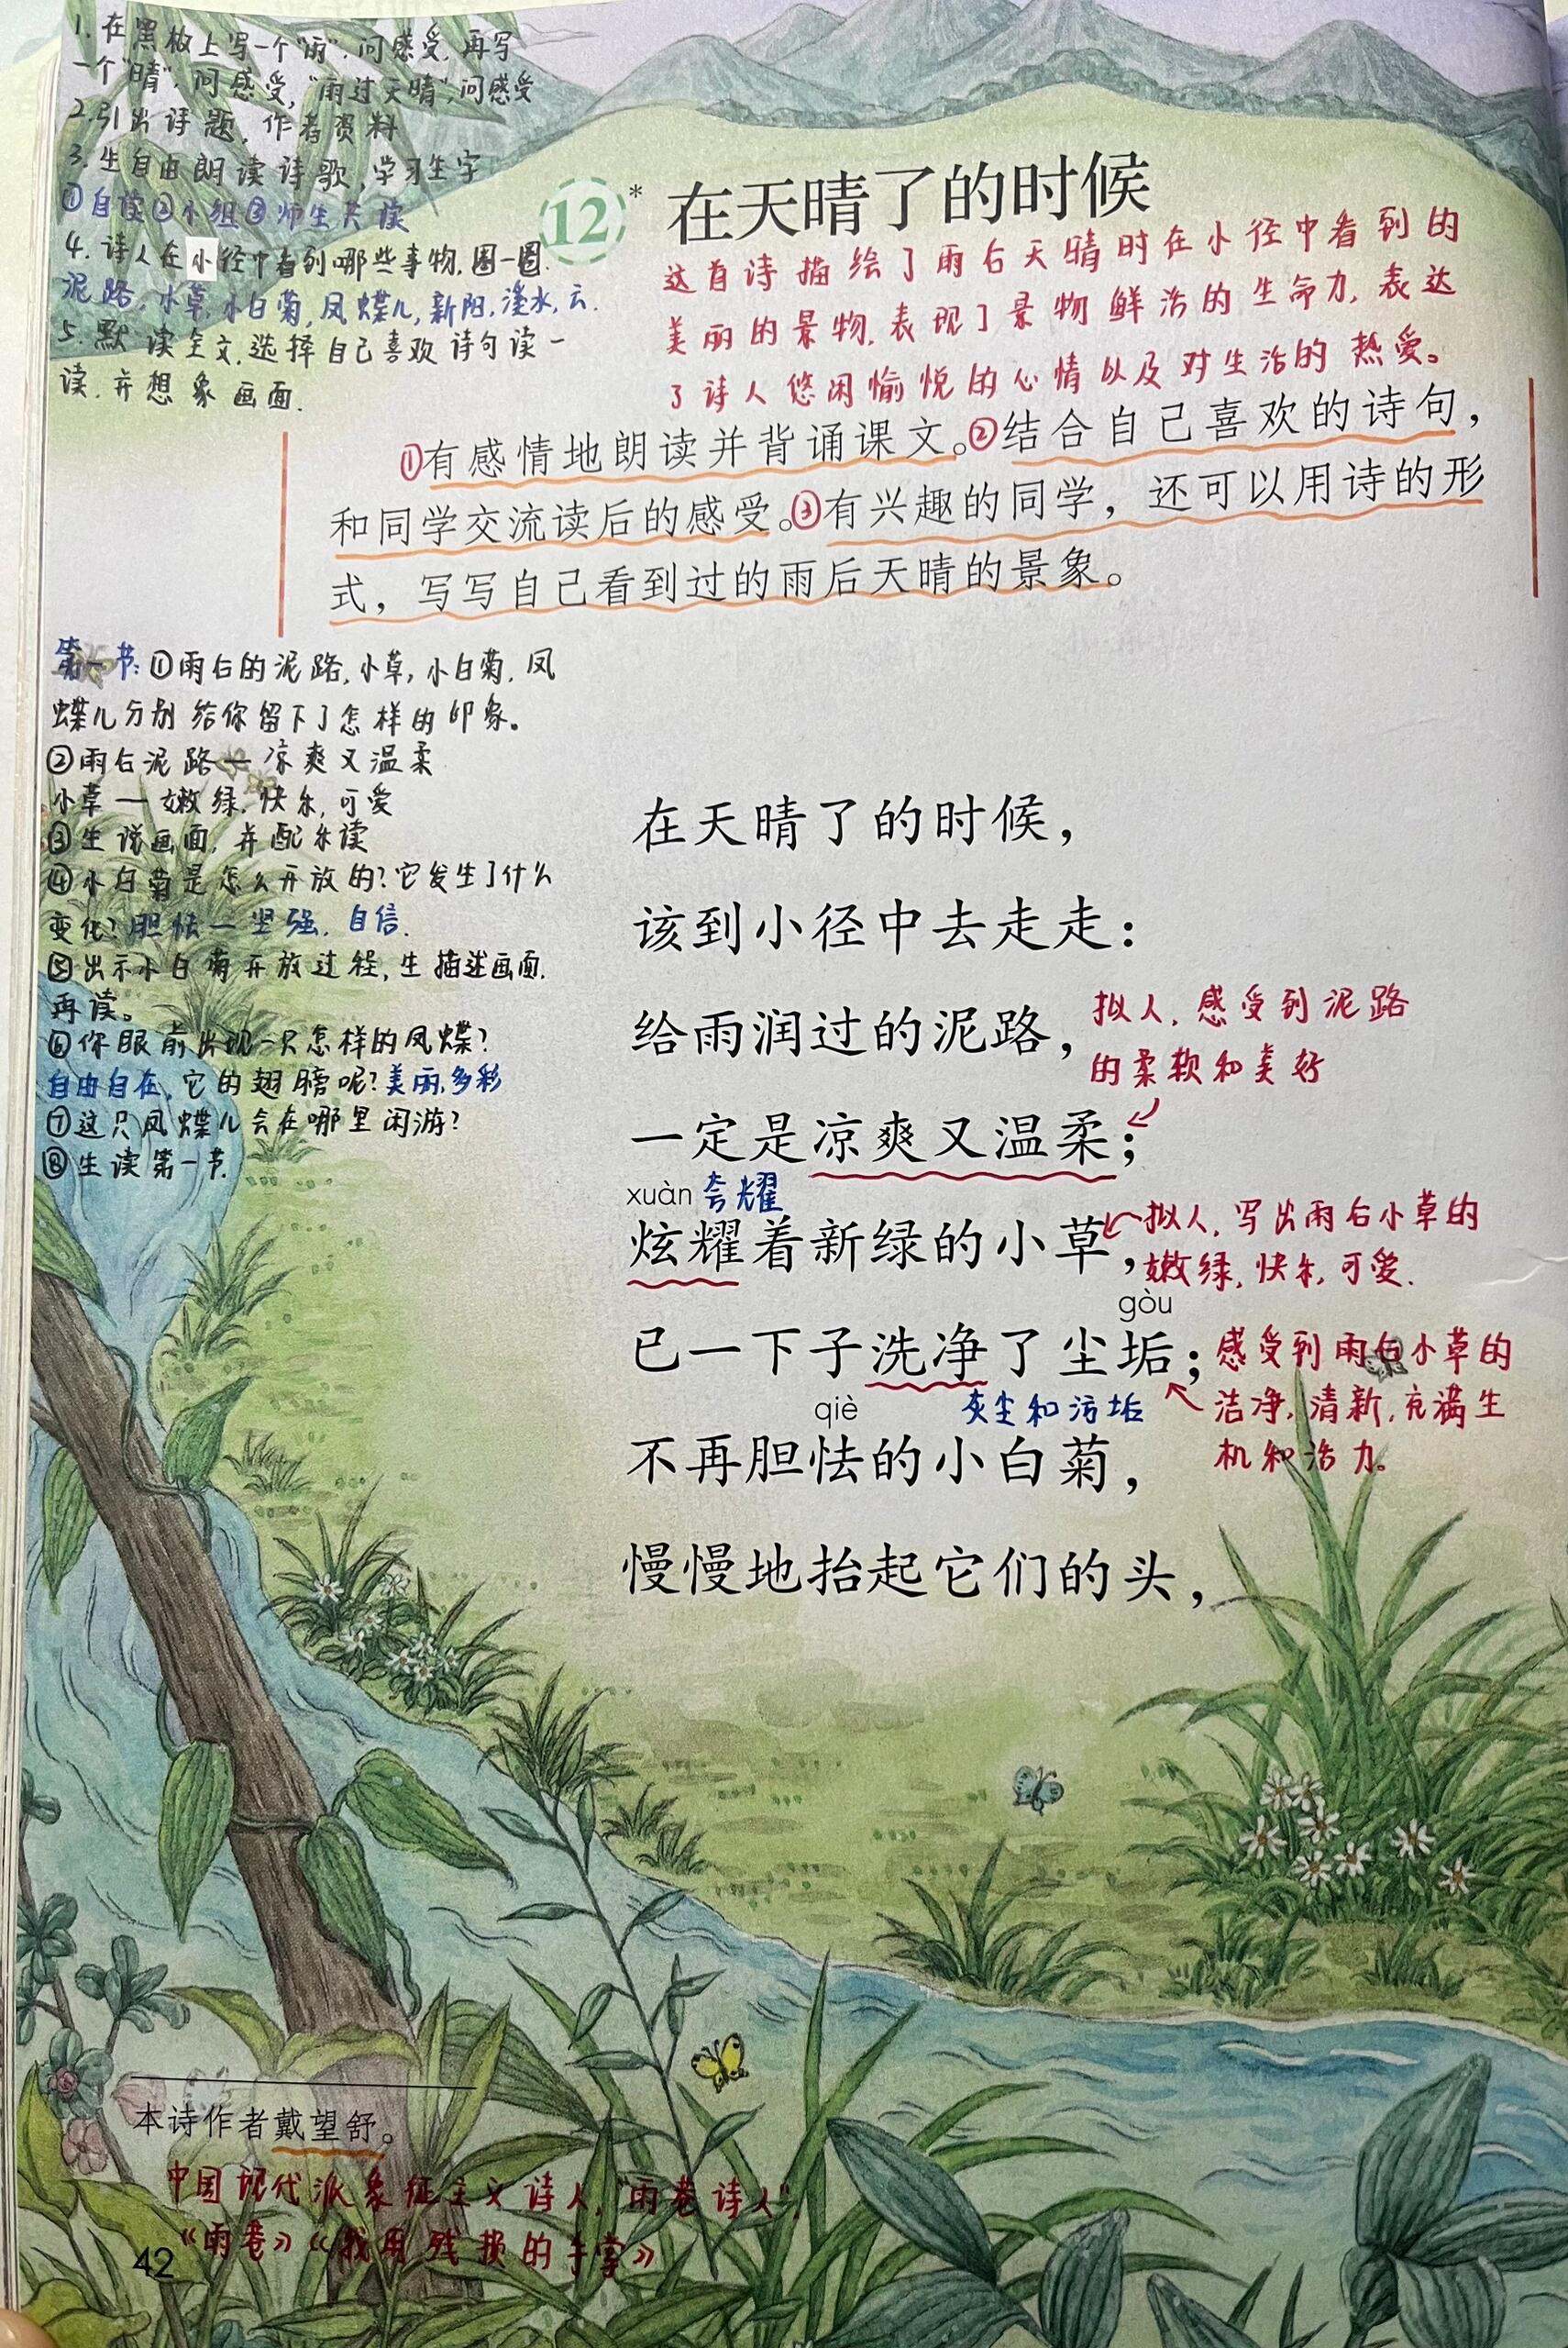 1.在黑板上写一个“雨”，问感受，再写
一个“晴”，问感受，“雨过天晴”，问感受
2.引出诗题，作者资料
3.生自由朗读诗歌，学习生字
①自读②小组③师生共读
4.诗人在小径中看到哪些事物，圈一圈.
泥路，小草，小白菊，凤蝶儿，新阳，溪水，云.
5.默读全文，选择自己喜欢诗句读一
读.并想象画面.
12* 在天晴了的时候
这首诗描绘了雨后天晴时在小径中看到的
美丽的景物，表现了景物鲜活的生命力，表达
了诗人悠闲愉悦的心情以及对生活的热爱。
①有感情地朗读并背诵课文。②结合自己喜欢的诗句，
和同学交流读后的感受。③有兴趣的同学，还可以用诗的形
式，写写自己看到过的雨后天晴的景象。
第一节:①雨后的泥路，小草，小白菊，凤
蝶儿分别给你留下了怎样的印象。
②雨后泥路—凉爽又温柔
小草—嫩绿，快乐，可爱
③生说画面，并配乐读
④小白菊是怎么开放的?它发生了什么
变化?胆怯—坚强，自信.
⑤出示小白菊开放过程，生描述画面.
再读。
⑥你眼前出现一只怎样的凤蝶?
自由自在，它的翅膀呢?美丽，多彩
⑦这只凤蝶儿会在哪里闲游?
⑧生读第一节.
在天晴了的时候，
该到小径中去走走：
给雨润过的泥路，
拟人，感受到泥路
的柔软和美好
一定是凉爽又温柔；
xuàn 夸耀
炫耀着新绿的小草，
拟人，写出雨后小草的
嫩绿，快乐，可爱.
gòu
已一下子洗净了尘垢；
感受到雨后小草的
洁净，清新，充满生
机和活力。
qiè 灰尘和污垢
不再胆怯的小白菊，
慢慢地抬起它们的头，
本诗作者戴望舒。
中国现代派象征主义诗人，“雨巷诗人”，
《雨巷》《我用残损的手掌》
42